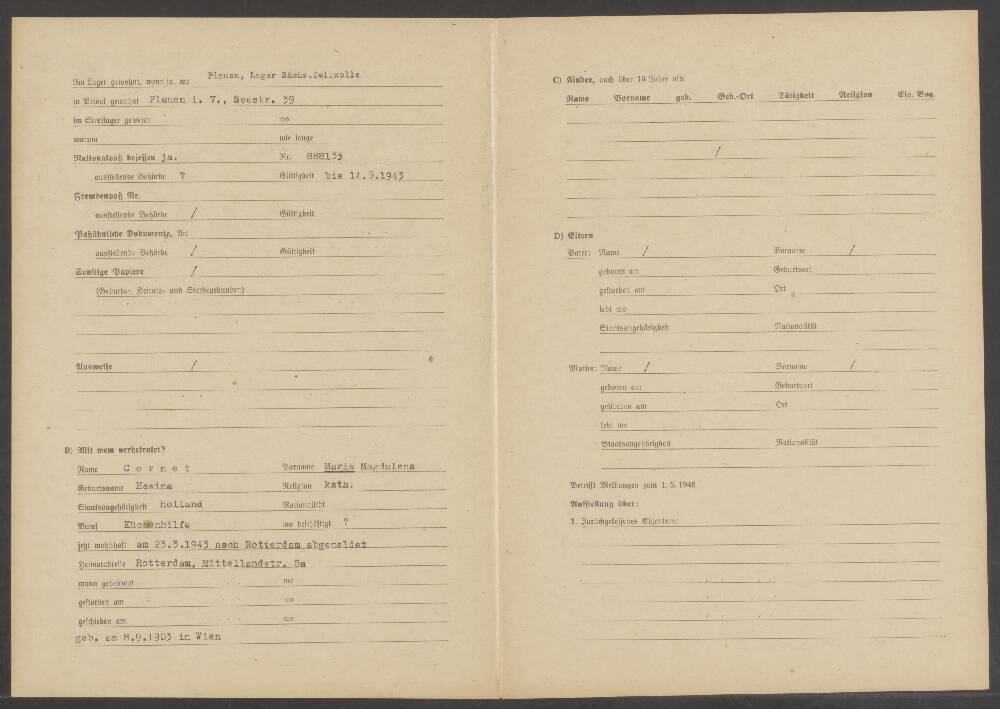 Im Lager gewohnt, wenn ja, wo Plauen, Lager Sächs.Zellwolle
in Privat gewohnt Plauen i. V., Seestr. 39
im Straflager gewesen wo
warum wie lange
Nationalpaß besessen ja. Nr. 888153
ausstellende Behörde ? Gültigkeit bis 14.5.1943
Fremdenpaß Nr.
ausstellende Behörde / Gültigkeit
Paßähnliche Dokumente, Art
ausstellende Behörde / Gültigkeit
Sonstige Papiere /
(Geburts-, Heirats- und Sterbeurkunden)
Ausweise /
B) Mit wem verheiratet?
Name Cornet Vorname Maria Magdalena
Geburtsname Hesina Religion kath.
Staatsangehörigkeit Holland Nationalität
Beruf Küchenhilfe wo beschäftigt ?
jetzt wohnhaft am 23.3.1943 nach Rotterdam abgemeldet
Heimatadresse Rotterdam, Mittellandstr. 8a
wann geheiratet wo
gestorben am wo
geschieden am wo
geb. am 8.9.1903 in Wien
C) Kinder, auch über 16 Jahre alte
Name Vorname geb. Geb.-Ort Tätigkeit Religion Eig. Bog.
/
D) Eltern
Vater: Name / Vorname /
geboren am Geburtsort
gestorben am Ort
lebt wo
Staatsangehörigkeit Nationalität
Mutter: Name / Vorname /
geboren am Geburtsort
gestorben am Ort
lebt wo
Staatsangehörigkeit Nationalität
Betrifft Meldungen zum 1. 5. 1946
Aufstellung über:
1. Zurückgelassenes Eigentum: